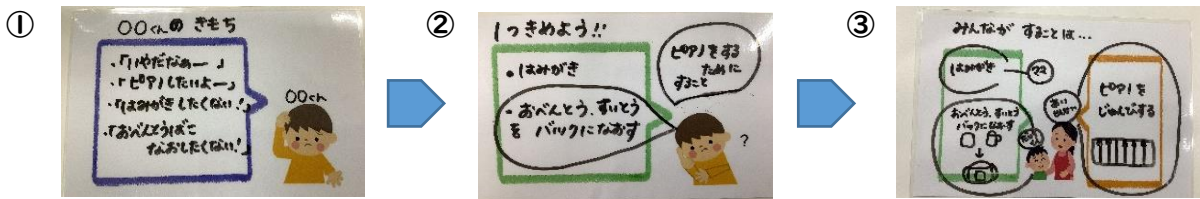 ①
〇〇くんの きもち
・「いやだなぁー」
・「ピアノしたいよー」
・「はみがきしたくない!」
・「おべんとうばこ
なおしたくない!」
〇〇くん
②
1つきめよう!!
・はみがき
・おべんとう、すいとう
を バックになおす
ピアノをする
ために
すること
?
③
みんなが することは…
はみがき
おべんとう、すいとう
バックになおす
↓
ピアノを
じゅんびする